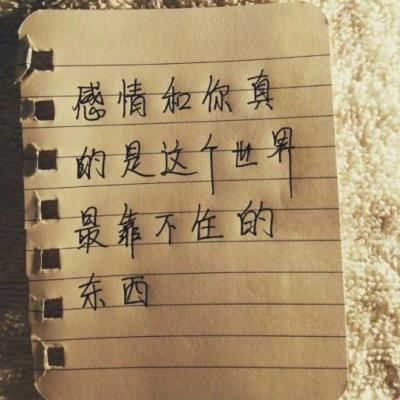 感情和你真
的是这个世界
最靠不住的
东西